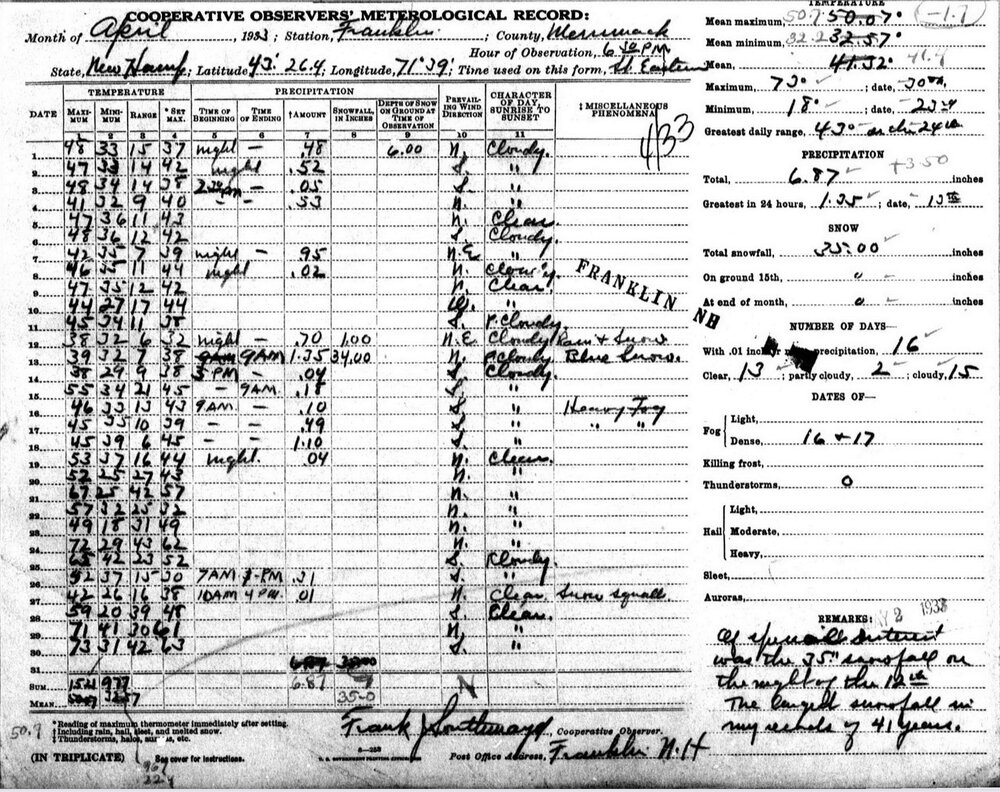 COOPERATIVE OBSERVERS' METEROLOGICAL RECORD:
Month of April 1933; Station, Franklin; County, Merrimack
Hour of Observation, 6 30 P.M.
State, New Hamp; Latitude 43° 26.4; Longitude, 71° 39'; Time used on this form, St. Eastern
DATE TEMPERATURE PRECIPITATION DEPTH OF SNOW ON GROUND AT TIME OF OBSERVATION PREVAILING WIND DIRECTION CHARACTER OF DAY, SUNRISE TO SUNSET ‡ MISCELLANEOUS PHENOMENA
MAXIMUM MINIMUM RANGE * SET MAX. TIME OF BEGINNING TIME OF ENDING † AMOUNT SNOWFALL, IN INCHES
1 2 3 4 5 6 7 8 9 10 11
1 48 33 15 37 night — .48 6.00 N. Cloudy. 433
2 47 33 14 42 night .52 S. "
3 48 34 14 38 PM — .05 S. "
4 41 32 9 40 - - .53 N. "
5 47 36 11 43 N. Clear.
6 48 36 12 42 S. Cloudy.
7 42 35 7 39 night — .95 N.E "
8 46 35 11 44 night .02 N. Cloudy
9 47 35 12 42 N. Clear.
10 44 27 17 44 W. "
11 45 34 11 38 S. P. Cloudy.
12 38 32 6 32 night — .70 1.00 N.E Cloudy Rain & Snow
13 39 32 7 38 9AM 1.35 34.00 N. P. Cloudy Blue Snow.
14 38 29 9 38 PM — .04 S. Cloudy
15 55 34 21 45 - 9AM. .18 S. "
16 46 33 13 43 9AM — .10 S. " Heavy Fog
17 45 35 10 39 - - .49 S. " " "
18 45 39 6 45 - - 1.10 S. "
19 53 37 16 44 night. .04 N. Clear.
20 52 25 27 43 N. "
21 67 25 42 57 N. "
22 57 32 25 32 N. "
23 49 18 31 49 N. "
24 72 29 43 62 N. "
25 65 42 23 52 S. Cloudy.
26 52 37 15 30 7AM PM .31 S. "
27 42 26 16 38 10AM 4 PM. .01 N. Clear. Snow squall.
28 59 20 39 48 S. Clear.
29 71 41 30 61 N. "
30 73 31 42 63 S. "
31
SUM 977 6.87
MEAN 3257 35.0
FRANKLIN NH
Frank J Southmayd, Cooperative Observer.
Post Office address, Franklin N.H
50.7
* Reading of maximum thermometer immediately after setting.
† Including rain, hail, sleet, and melted snow.
‡ Thunderstorms, halos, auroras, etc.
(IN TRIPLICATE) See cover for instructions.
TEMPERATURE
Mean maximum, 50.7 50.07° (-1.7)
Mean minimum, 32.2 32.57°
Mean, 41.32° 41.4
Maximum, 73°; date, 30th
Minimum, 18°; date, 23rd
Greatest daily range, 43° on the 24th
PRECIPITATION
Total, 6.87 +3.50 inches
Greatest in 24 hours, 1.35; date, 13th
SNOW
Total snowfall, 35.00 inches
On ground 15th, 0 inches
At end of month, 0 inches
NUMBER OF DAYS—
With .01 inch or more precipitation, 16
Clear, 13; partly cloudy, 2; cloudy, 15
DATES OF—
Fog Light,
Dense, 16 + 17
Killing frost,
Thunderstorms, 0
Hail Light,
Moderate,
Heavy,
Sleet,
Auroras,
2 1933
REMARKS:
Of special interest
was the 35" snowfall on
the night of the 12th
The largest snowfall in
my records of 41 years.